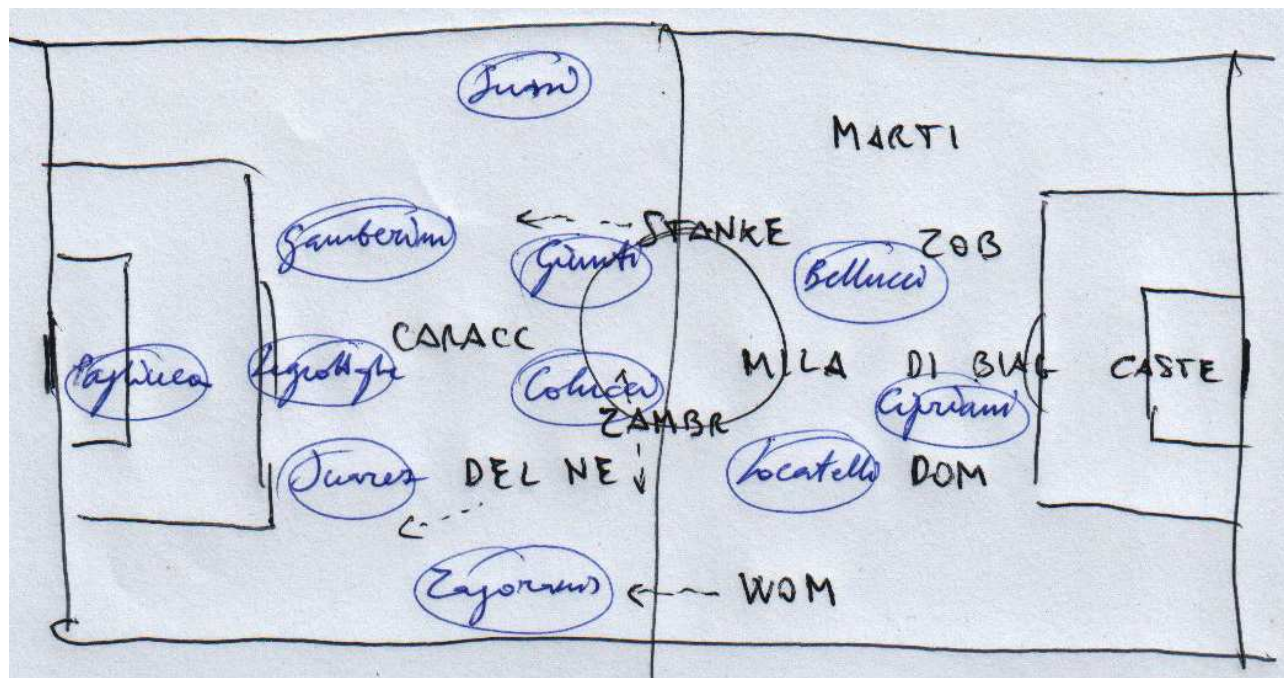 Sussi
MARTI
Gamberini
STANKE
ZOB
Giunti
Bellucci
CARACC
Pagliuca
Legrottaglie
Colucci
MILA
DI BIAG
CASTE
Cipriani
ZAMBR
Juarez
DEL NE
Locatelli
DOM
Zagorakis
WOM